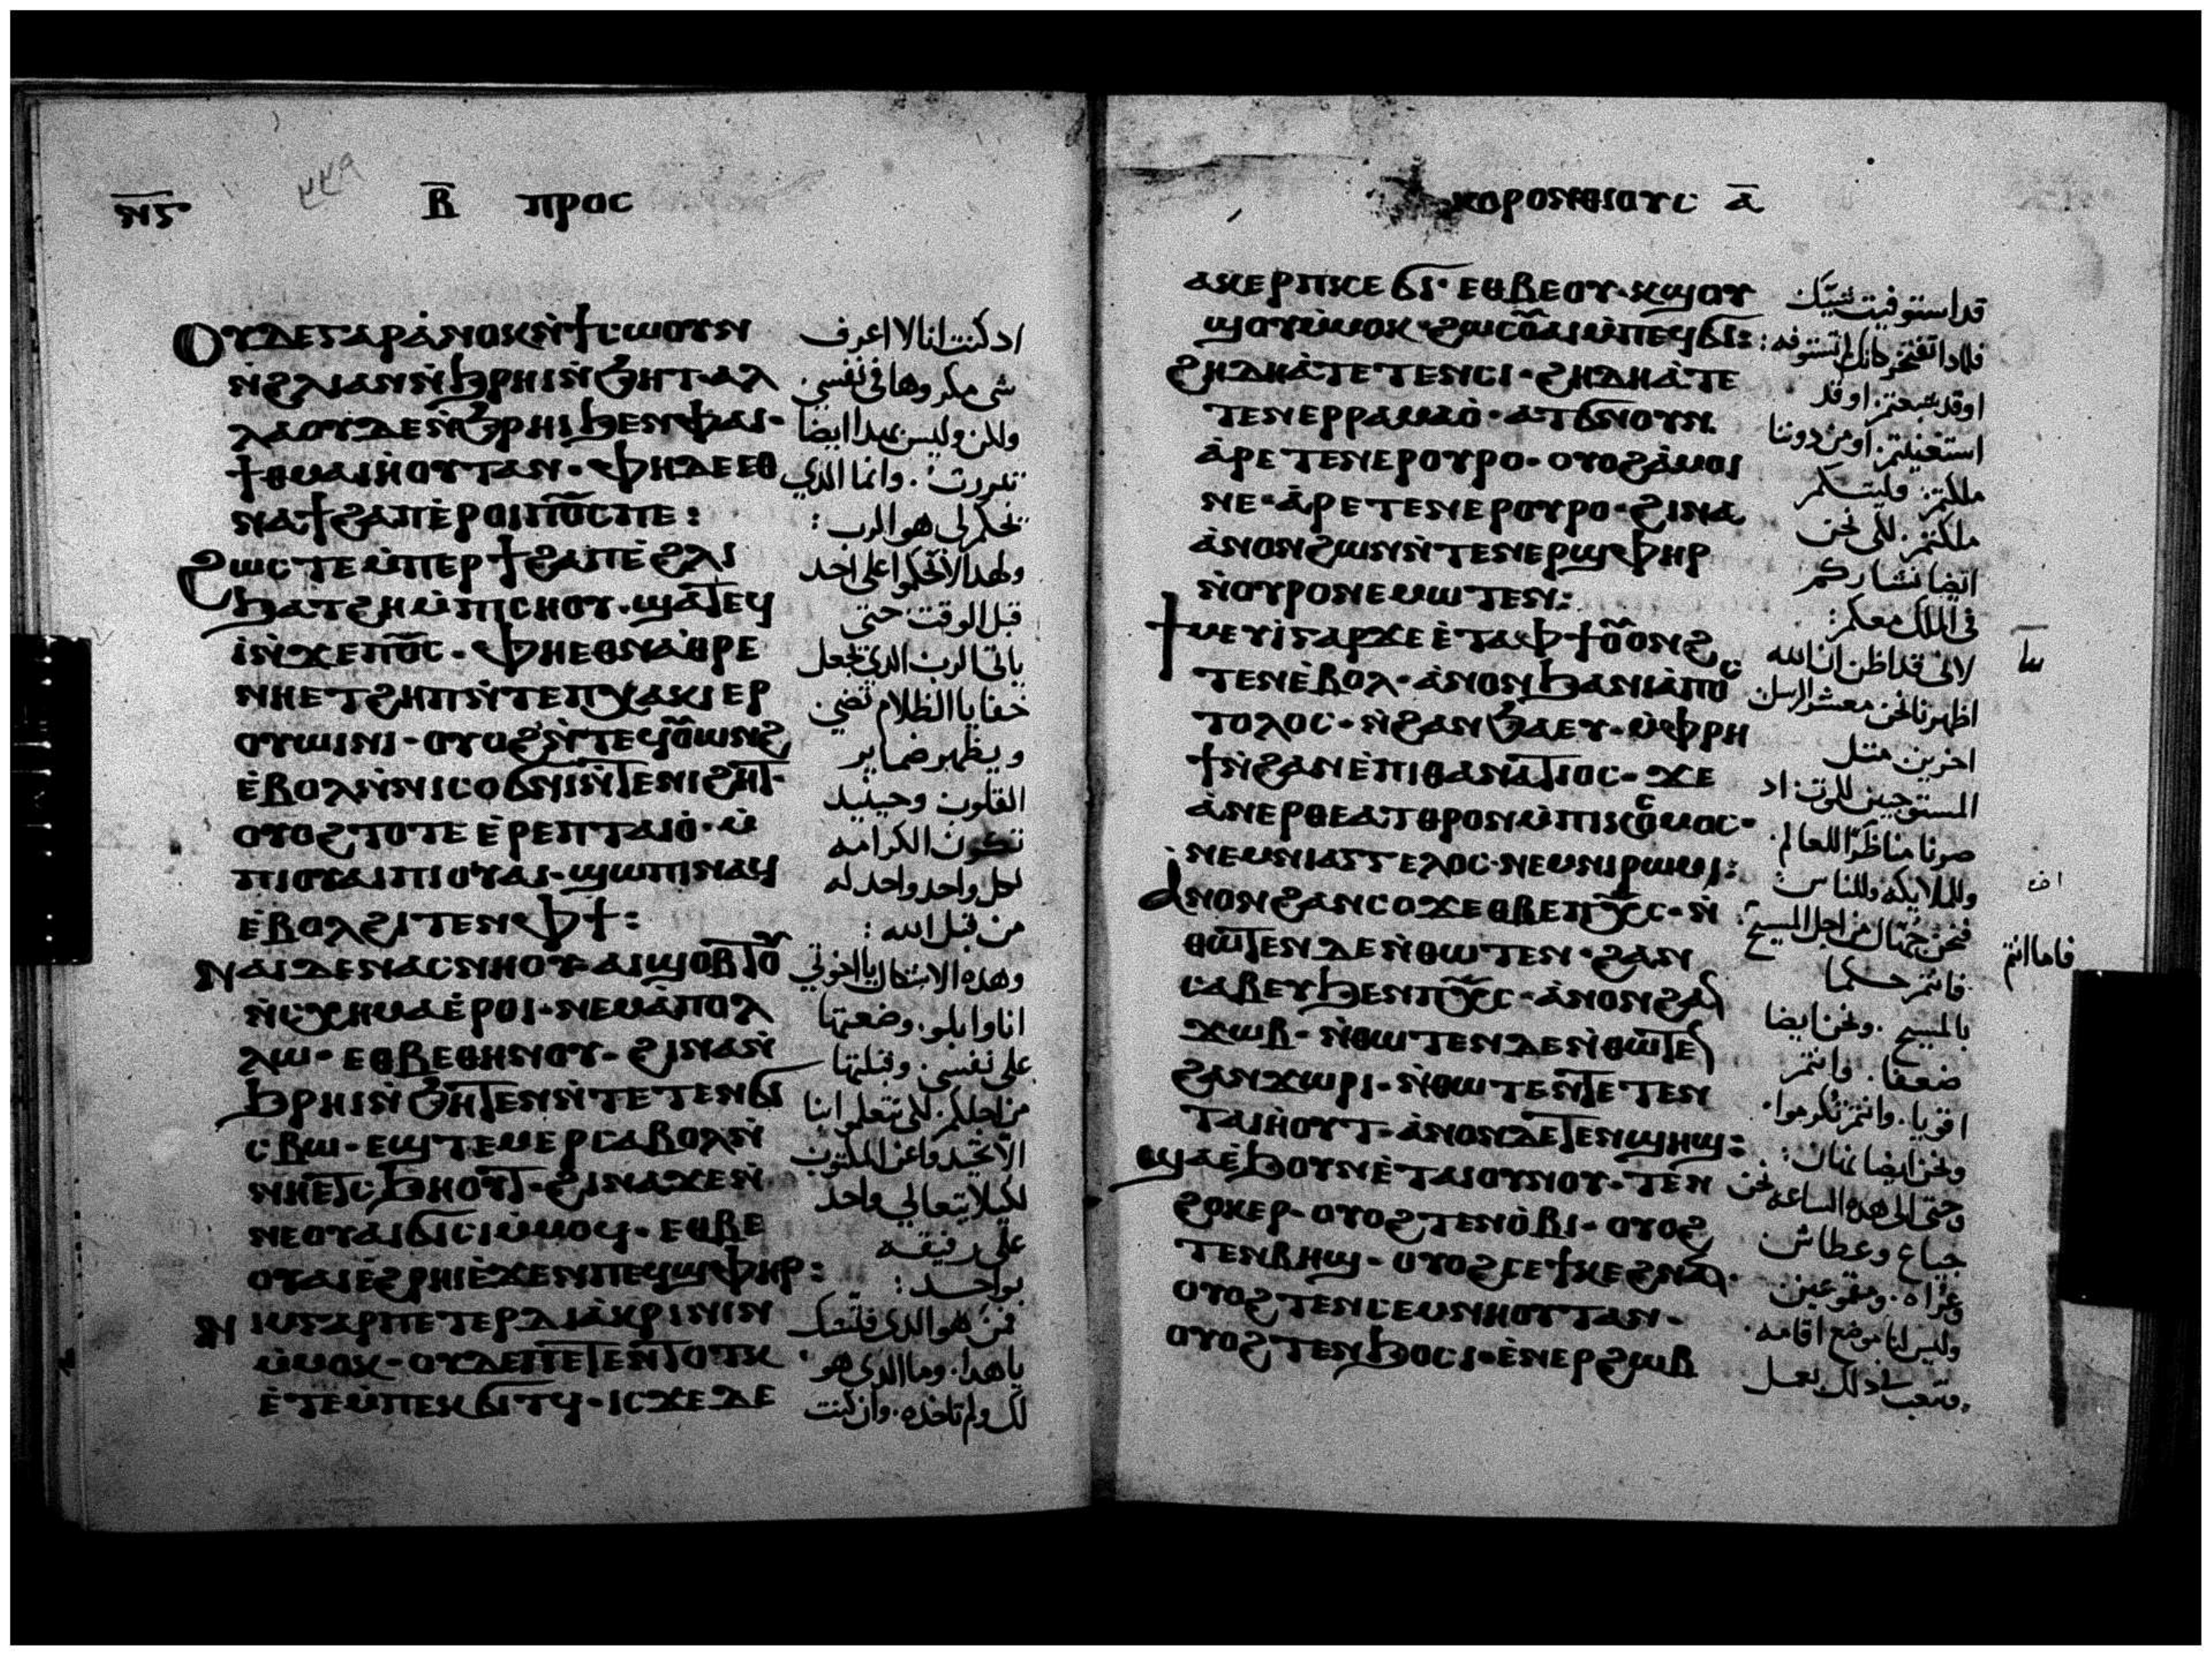 ⲛ̅ⲋ̅
٢٢٩
ⲃ̅ ⲡⲣⲟⲥ
ⲟⲩⲇⲉⲅⲁⲣⲁ̀ⲛⲟⲕⲛ̀ϯⲥⲱⲟⲩⲛ
ⲛ̀ϩⲗⲓⲁⲛⲛ̀ϧⲣⲏⲓⲛ̀ϧⲏⲧ·ⲁⲗ
ⲗⲁⲟⲩⲇⲉⲛ̀ϧⲣⲏⲓϧⲉⲛⲫⲁⲓ·
ϯⲑⲙⲁⲓⲏⲟⲩⲧⲁⲛ·ⲫⲏⲇⲉⲉⲑ
ⲛⲁϯϩⲁⲡⲉ̀ⲣⲟⲓⲡϭ̅ⲥ̅ⲡⲉ:
ϩⲱⲥⲧⲉⲙ̀ⲡⲉⲣϯϩⲁⲡⲉ̀ϩⲗⲓ
ϧⲁⲧϩⲏⲙ̀ⲡⲓⲥⲏⲟⲩ·ϣⲁⲧⲉϥ
ⲓ̀ⲛ̀ϫⲉⲡϭ̅ⲥ̅·ⲫⲏⲉⲑⲛⲁⲑⲣⲉ
ⲛⲏⲉⲧϩⲏⲡⲛ̀ⲧⲉⲡⲭⲁⲕⲓⲉⲣ
ⲟⲩⲱⲓⲛⲓ·ⲟⲩⲟϩⲛ̀ⲧⲉϥⲟ̅ⲱⲛϩ
ⲉ̀ⲃⲟⲗⲛ̀ⲛⲓⲥⲟϭⲛⲓⲛ̀ⲧⲉⲛⲓϩⲏⲧ·
ⲟⲩⲟϩⲧⲟⲧⲉⲉ̀ⲣⲉⲡⲧⲁⲓⲟ̀·ⲙ̀
ⲡⲓⲟⲩⲁⲓⲡⲓⲟⲩⲁⲓ·ϣⲱⲡⲓⲛⲁϥ
ⲉ̀ⲃⲟⲗϩⲓⲧⲉⲛⲫϯ:
ⲛⲁⲓⲇⲉⲛⲁⲥⲛⲏⲟⲩ·ⲁⲓϣⲟⲃⲧⲟⲩ
ⲛ̀ⲥⲭⲏⲙⲁⲉ̀ⲣⲟⲓ·ⲛⲉⲙⲁ̀ⲡⲟⲗ
ⲗⲱ·ⲉⲑⲃⲉⲑⲏⲛⲟⲩ·ϩⲓⲛⲁⲛ̀
ϧⲣⲏⲓⲛ̀ϧⲏⲧⲉⲛⲛ̀ⲧⲉⲧⲉⲛϭⲓ
ⲥⲃⲱ·ⲉϣⲧⲉⲙⲉⲣⲥⲁⲃⲟⲗⲛ̀
ⲛⲏⲉⲧⲥϧⲏⲟⲩⲧ·ϩⲓⲛⲁϫⲉⲛ̀
ⲛⲉⲟⲩⲁⲓϭⲓⲥⲓⲙ̀ⲙⲟϥ·ⲉⲑⲃⲉ
ⲟⲩⲁⲓⲉ̀ϩⲣⲏⲓⲉ̀ϫⲉⲛⲡⲉϥϣⲫⲏⲣ:
ⲛⲓⲙⲅⲁⲣⲡⲉⲧⲉⲣⲇⲓⲁ̀ⲕⲣⲓⲛⲓⲛ
ⲙ̀ⲙⲟⲕ·ⲟⲩⲇⲉⲡⲉⲧⲉⲛⲧⲟⲧⲕ
ⲉ̀ⲧⲉⲙ̀ⲡⲉⲕϭⲓⲧϥ·ⲓⲥϫⲉⲇⲉ
اد كنت انا لا اعرف
شى مكروها فى نفسى.
ولكن وليس بهدا ايضا
تبررت. وانما الدي
يحكم لى هو الرب:
ولهدا لا تحكموا على احد
قبل الوقت حتى
ياتى الرب الدى يجعل
خفايا الظلام تضى
ويظهر ضماير
القلوب وحينيد
تكون الكرامه
لكل واحد واحد له
من قبل الله:
وهذه الاشكال يا اخوتي
انا وابلو. وضعتها
على نفسى. وقبلتها
من اجلكم. لكى تتعلموا بنا
الا تحيدوا عن المكتوب
لكيلا يتعالى واحد
على رفيقه
بواحد:
فمن هو الدى فتشك
يا هدا. وما الدى هو
لك ولم تاخذه. وان كنت
ⲕⲟⲣⲟⲛⲑⲓⲟⲩⲥ ⲁ̅
ⲁⲕⲉⲣⲡⲕⲉϭⲓ·ⲉⲑⲃⲉⲟⲩ·ⲕϣⲟⲩ
ϣⲟⲩⲙ̀ⲙⲟⲕ·ϩⲱⲥⲟ̅ⲙ̀ⲡⲉϥϭⲓ:
ϩⲏⲇⲏⲁ̀ⲧⲉⲧⲉⲛⲥⲓ·ϩⲏⲇⲏⲁ̀ⲧⲉ
ⲧⲉⲛⲉⲣⲣⲁⲙⲁⲟ̀·ⲁⲧϭⲛⲟⲩⲛ
ⲁ̀ⲣⲉⲧⲉⲛⲉⲣⲟⲩⲣⲟ·ⲟⲩⲟϩⲁ̀ⲙⲟⲓ
ⲛⲉ·ⲁ̀ⲣⲉⲧⲉⲛⲉⲣⲟⲩⲣⲟ·ϩⲓⲛⲁ
ⲁ̀ⲛⲟⲛϩⲱⲛⲛ̀ⲧⲉⲛⲉⲣϣⲫⲏⲣ
ⲛ̀ⲟⲩⲣⲟⲛⲉⲙⲱⲧⲉⲛ:
ϯⲙⲉⲩⲓ̀ⲅⲁⲣϫⲉⲉ̀ⲧⲁⲫϯⲟ̅ⲟⲛϩ
ⲧⲉⲛⲉ̀ⲃⲟⲗ·ⲁ̀ⲛⲟⲛϧⲁⲛⲓⲁ̀ⲡⲟⲥ
ⲧⲟⲗⲟⲥ·ⲛ̀ϩⲁⲛϧⲁⲉⲩ·ⲙ̀ⲫⲣⲏ
ϯⲛ̀ϩⲁⲛⲉ̀ⲡⲓⲑⲁⲛⲁⲧⲓⲟⲥ·ϫⲉ
ⲁ̀ⲛⲉⲣⲑⲉⲁⲧⲣⲟⲛⲙ̀ⲡⲓⲕⲟⲥⲙⲟⲥ·
ⲛⲉⲙⲛⲓⲁⲅⲅⲉⲗⲟⲥ·ⲛⲉⲙⲛⲓⲣⲱⲙⲓ:
ⲁⲛⲟⲛϩⲁⲛⲥⲟϫⲉⲑⲃⲉⲡⲭ̅ⲥ̅·ⲛ̀
ⲑⲱⲧⲉⲛⲇⲉⲛ̀ⲑⲱⲧⲉⲛ·ϩⲁⲛ
ⲥⲁⲃⲉⲩϧⲉⲛⲡⲭ̅ⲥ̅·ⲁ̀ⲛⲟⲛϩⲁⲛ
ϫⲱⲃ·ⲛ̀ⲑⲱⲧⲉⲛⲇⲉⲛ̀ⲑⲱⲧⲉⲛ
ϩⲁⲛϫⲱⲣⲓ·ⲛ̀ⲑⲱⲧⲉⲛⲧⲉⲧⲉⲛ
ⲧⲁⲓⲏⲟⲩⲧ·ⲁ̀ⲛⲟⲛⲇⲉⲧⲉⲛϣⲏϣ:
ϣⲁⲉ̀ϧⲟⲩⲛⲉ̀ⲧⲁⲓⲟⲩⲛⲟⲩ·ⲧⲉⲛ
ϩⲟⲕⲉⲣ·ⲟⲩⲟϩⲧⲉⲛⲟ̀ⲃⲓ·ⲟⲩⲟϩ
ⲧⲉⲛⲃⲏϣ·ⲟⲩⲟϩⲥⲉϯⲕⲉϩⲛⲁⲛ·
ⲟⲩⲟϩⲧⲉⲛⲥⲉⲙⲛⲏⲟⲩⲧⲁⲛ·
ⲟⲩⲟϩⲧⲉⲛϧⲟⲥⲓ·ⲉ̀ⲛⲉⲣϩⲱⲃ
قد استوفيت شيك
فلمادا تفتخر كانك لم تستوفه:
اوقد شبعتم. اوقد
استغنيتم. اومن دوننا
ملكتم. فليتكم
ملكتم. لكى نحن
ايضا نشارككم
فى الملك معكم:
لانى قد اظن ان الله
اظهرنا نحن معشر الرسل
اخرين مثل
المستوجبين للموت: اد
صرنا مناظرا للعالم.
وللملايكه وللناس:
فنحن جهال من اجل المسيح
فانتم حكما
بالمسيح. ونحن ايضا
ضعفا. فانتم
اقويا. وانتم تكرموا.
ونحن ايضا نهان:
وحتى الى هده الساعه نحن
جياع وعطاش
وعراه. ومقموعين
وليس لنا موضع اقامه.
ونتعب اد لك نعمل
فاما انتم